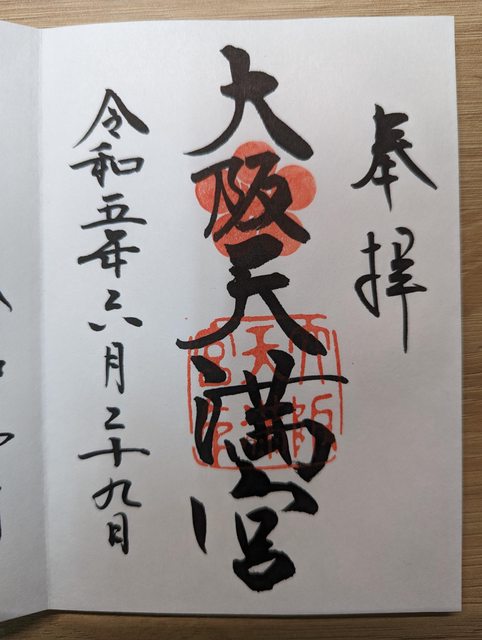 奉拝
大阪天満宮
令和五年六月二十九日